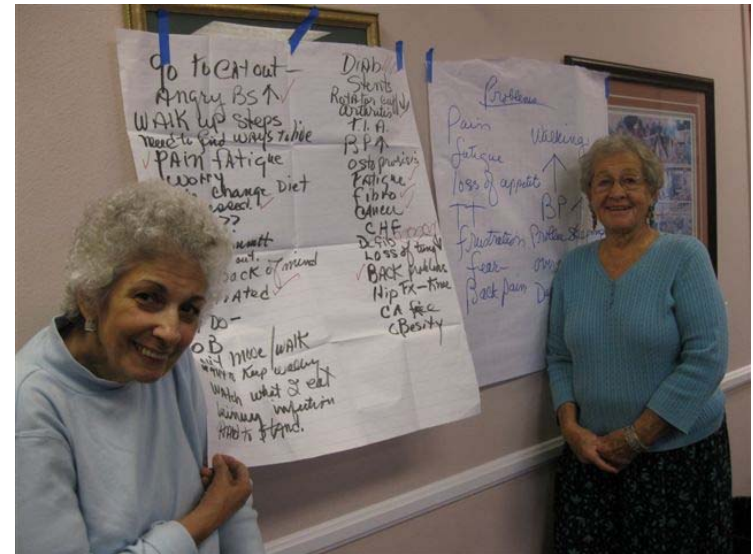 go to eat out –
Angry BS↑
WALK up Steps
need to find ways to live
PAIN fAtigue
WORRY
change Diet
??
out.
back of mind
DO –
OB
move/walk
Keep
WAtch what I eat
infection
HArd to StAnd.
DiAb
Stents
RotAtor cuff
Arthritis
T.I.A.
BP↑
FAtigue
fibro
CAncer
CHF
Loss of time
BAck problems
Hip FX – Knee
CA
OBesity
Problems
Pain
fatigue
loss of appetit
frustration
fear –
Back pain
Walking
↑
BP↑
Problem